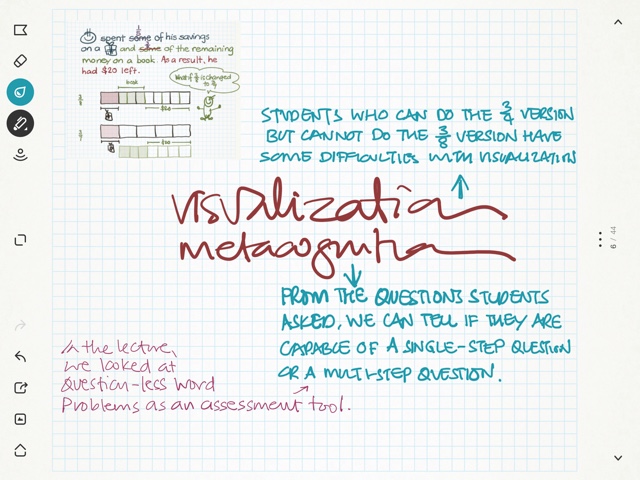 spent some of his savings
on a and some of the remaining
money on a book. As a result, he
had $20 left.
book
What if is changed to
$20
$20
STUDENTS WHO CAN DO THE 3/4 VERSION
BUT CANNOT DO THE 3/8 VERSION HAVE
SOME DIFFICULTIES WITH VISUALIZATION
visualization
metacognition
FROM THE QUESTIONS STUDENTS
ASKED, WE CAN TELL IF THEY ARE
CAPABLE OF A SINGLE-STEP QUESTION
OR A MULTI-STEP QUESTION.
In the lecture,
we looked at
question-less word
Problems as an assessment tool.
6 / 44